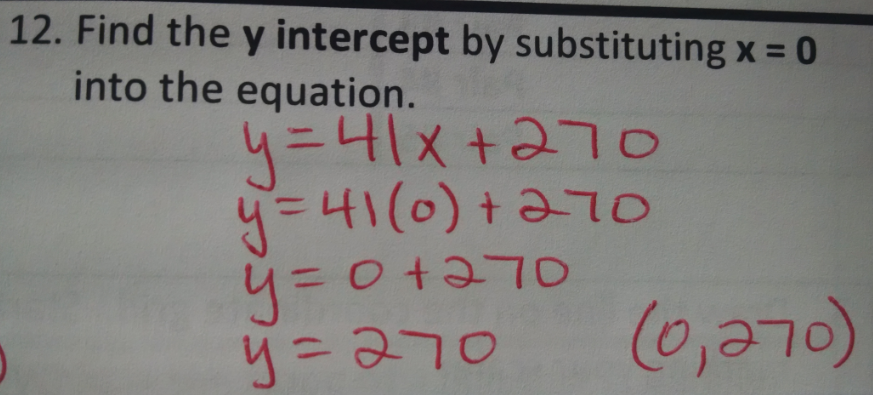 12. Find the y intercept by substituting x = 0
into the equation.
y=41x+270
y=41(0)+270
y=0+270
y=270 (0,270)